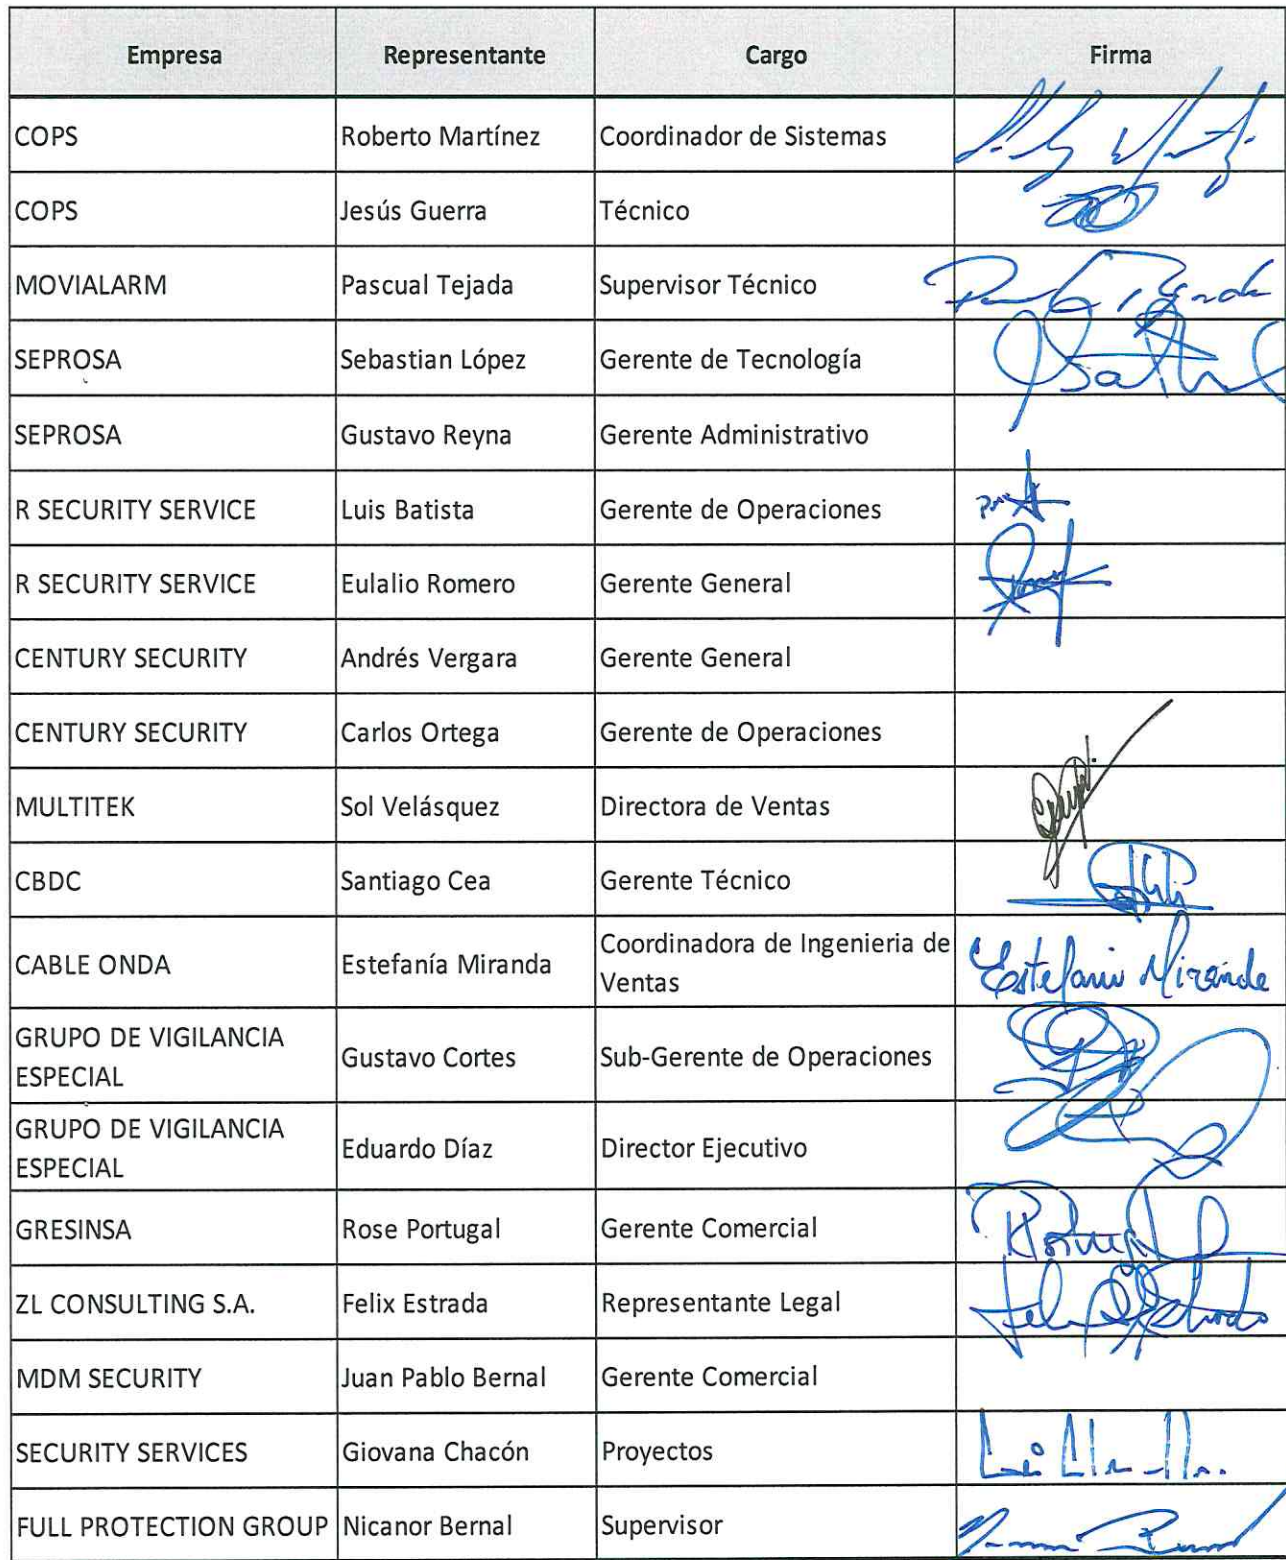 Empresa Representante Cargo Firma
COPS Roberto Martínez Coordinador de Sistemas
COPS Jesús Guerra Técnico
MOVIALARM Pascual Tejada Supervisor Técnico
SEPROSA Sebastian López Gerente de Tecnología
SEPROSA Gustavo Reyna Gerente Administrativo
R SECURITY SERVICE Luis Batista Gerente de Operaciones
R SECURITY SERVICE Eulalio Romero Gerente General
CENTURY SECURITY Andrés Vergara Gerente General
CENTURY SECURITY Carlos Ortega Gerente de Operaciones
MULTITEK Sol Velásquez Directora de Ventas
CBDC Santiago Cea Gerente Técnico
CABLE ONDA Estefanía Miranda Coordinadora de Ingenieria de
Ventas
GRUPO DE VIGILANCIA
ESPECIAL Gustavo Cortes Sub-Gerente de Operaciones
GRUPO DE VIGILANCIA
ESPECIAL Eduardo Díaz Director Ejecutivo
GRESINSA Rose Portugal Gerente Comercial
ZL CONSULTING S.A. Felix Estrada Representante Legal
MDM SECURITY Juan Pablo Bernal Gerente Comercial
SECURITY SERVICES Giovana Chacón Proyectos
FULL PROTECTION GROUP Nicanor Bernal Supervisor